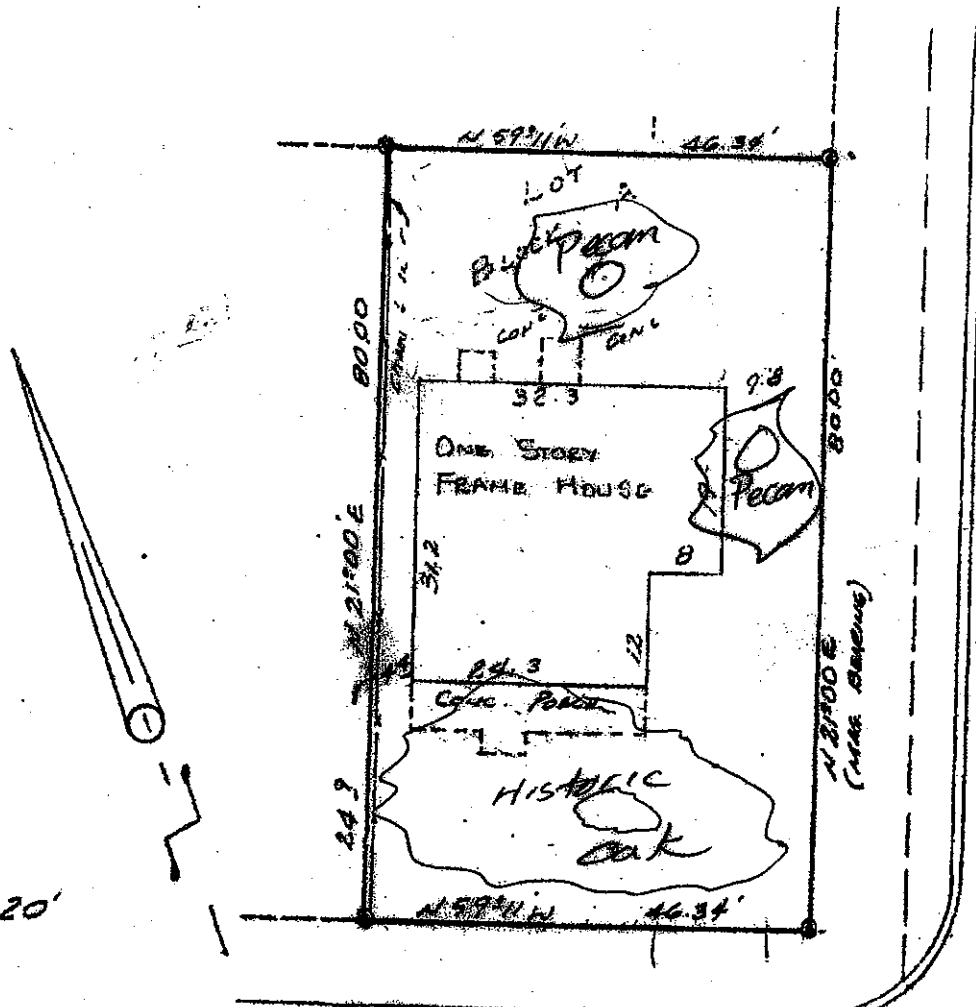 N 59°11'W 46.34'
LOT
Pecan
CONC
CONC
80.00
32.3
9.8
80.00'
ONE STORY
FRAME HOUSE
Pecan
8
31.2
N 21°00'E
12
24.3
CONC. PORCH
N 21°00'E
(MAG BEARING)
24.9
HISTORIC
Oak
20'
N 59°11'W 46.34'